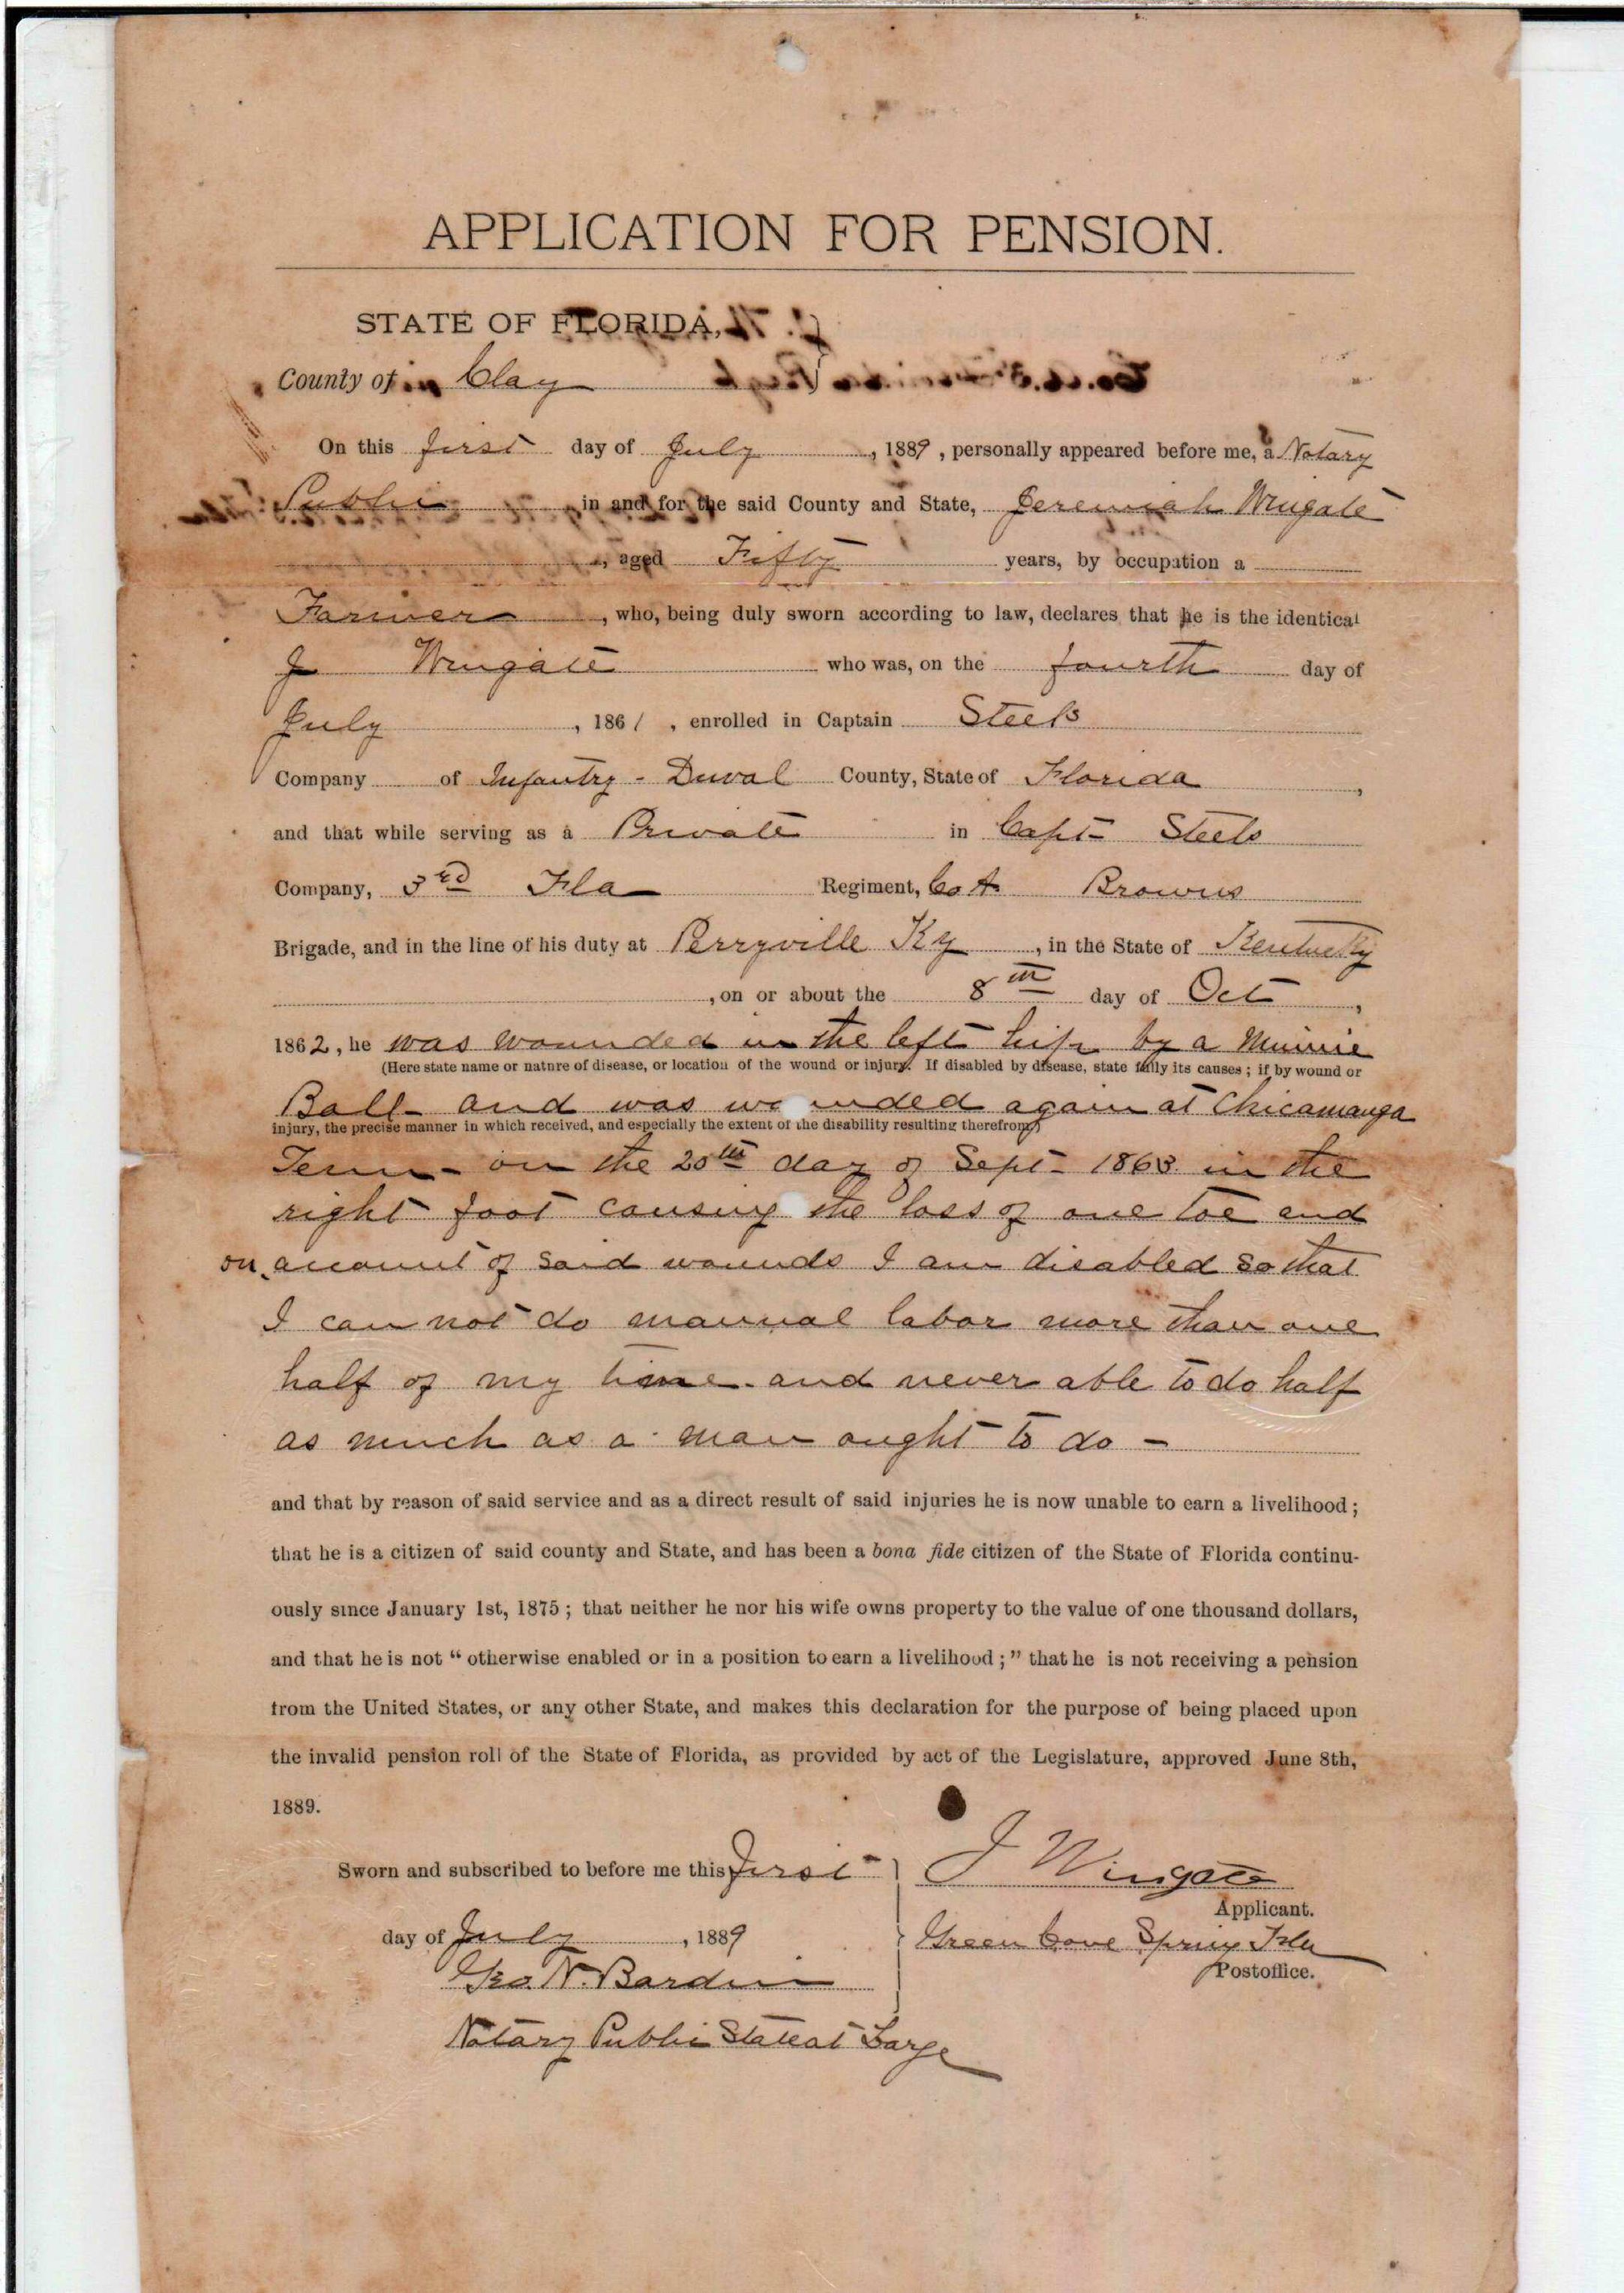 APPLICATION FOR PENSION.
STATE OF FLORIDA,
County of Clay
On this first day of July, 1889, personally appeared before me, a Notary
Public in and for the said County and State, Jeremiah Wingate
, aged Fifty years, by occupation a
Farmer, who, being duly sworn according to law, declares that he is the identical
J Wingate who was, on the fourth day of
July, 1861, enrolled in Captain Steels
Company of Infantry - Duval County, State of Florida,
and that while serving as a Private in Capt Steels
Company, 3rd Fla Regiment, Co A. Browns
Brigade, and in the line of his duty at Perryville Ky, in the State of Kentucky
, on or about the 8th day of Oct,
1862, he was wounded in the left hip by a Minnie
(Here state name or nature of disease, or location of the wound or injury. If disabled by disease, state fully its causes; if by wound or
Ball - and was wounded again at Chicamauga
injury, the precise manner in which received, and especially the extent of the disability resulting therefrom)
Tenn - on the 20th day of Sept - 1863 in the
right foot causing the loss of one toe and
on account of said wounds I am disabled so that
I can not do manual labor more than one
half of my time and never able to do half
as much as a man ought to do -
and that by reason of said service and as a direct result of said injuries he is now unable to earn a livelihood;
that he is a citizen of said county and State, and has been a bona fide citizen of the State of Florida continu-
ously since January 1st, 1875; that neither he nor his wife owns property to the value of one thousand dollars,
and that he is not "otherwise enabled or in a position to earn a livelihood;" that he is not receiving a pension
from the United States, or any other State, and makes this declaration for the purpose of being placed upon
the invalid pension roll of the State of Florida, as provided by act of the Legislature, approved June 8th,
1889.
Sworn and subscribed to before me this first
day of July, 1889
Geo. N. Bardin
Notary Public State at Large
J Wingate
Applicant.
Green Cove Spring Fla
Postoffice.